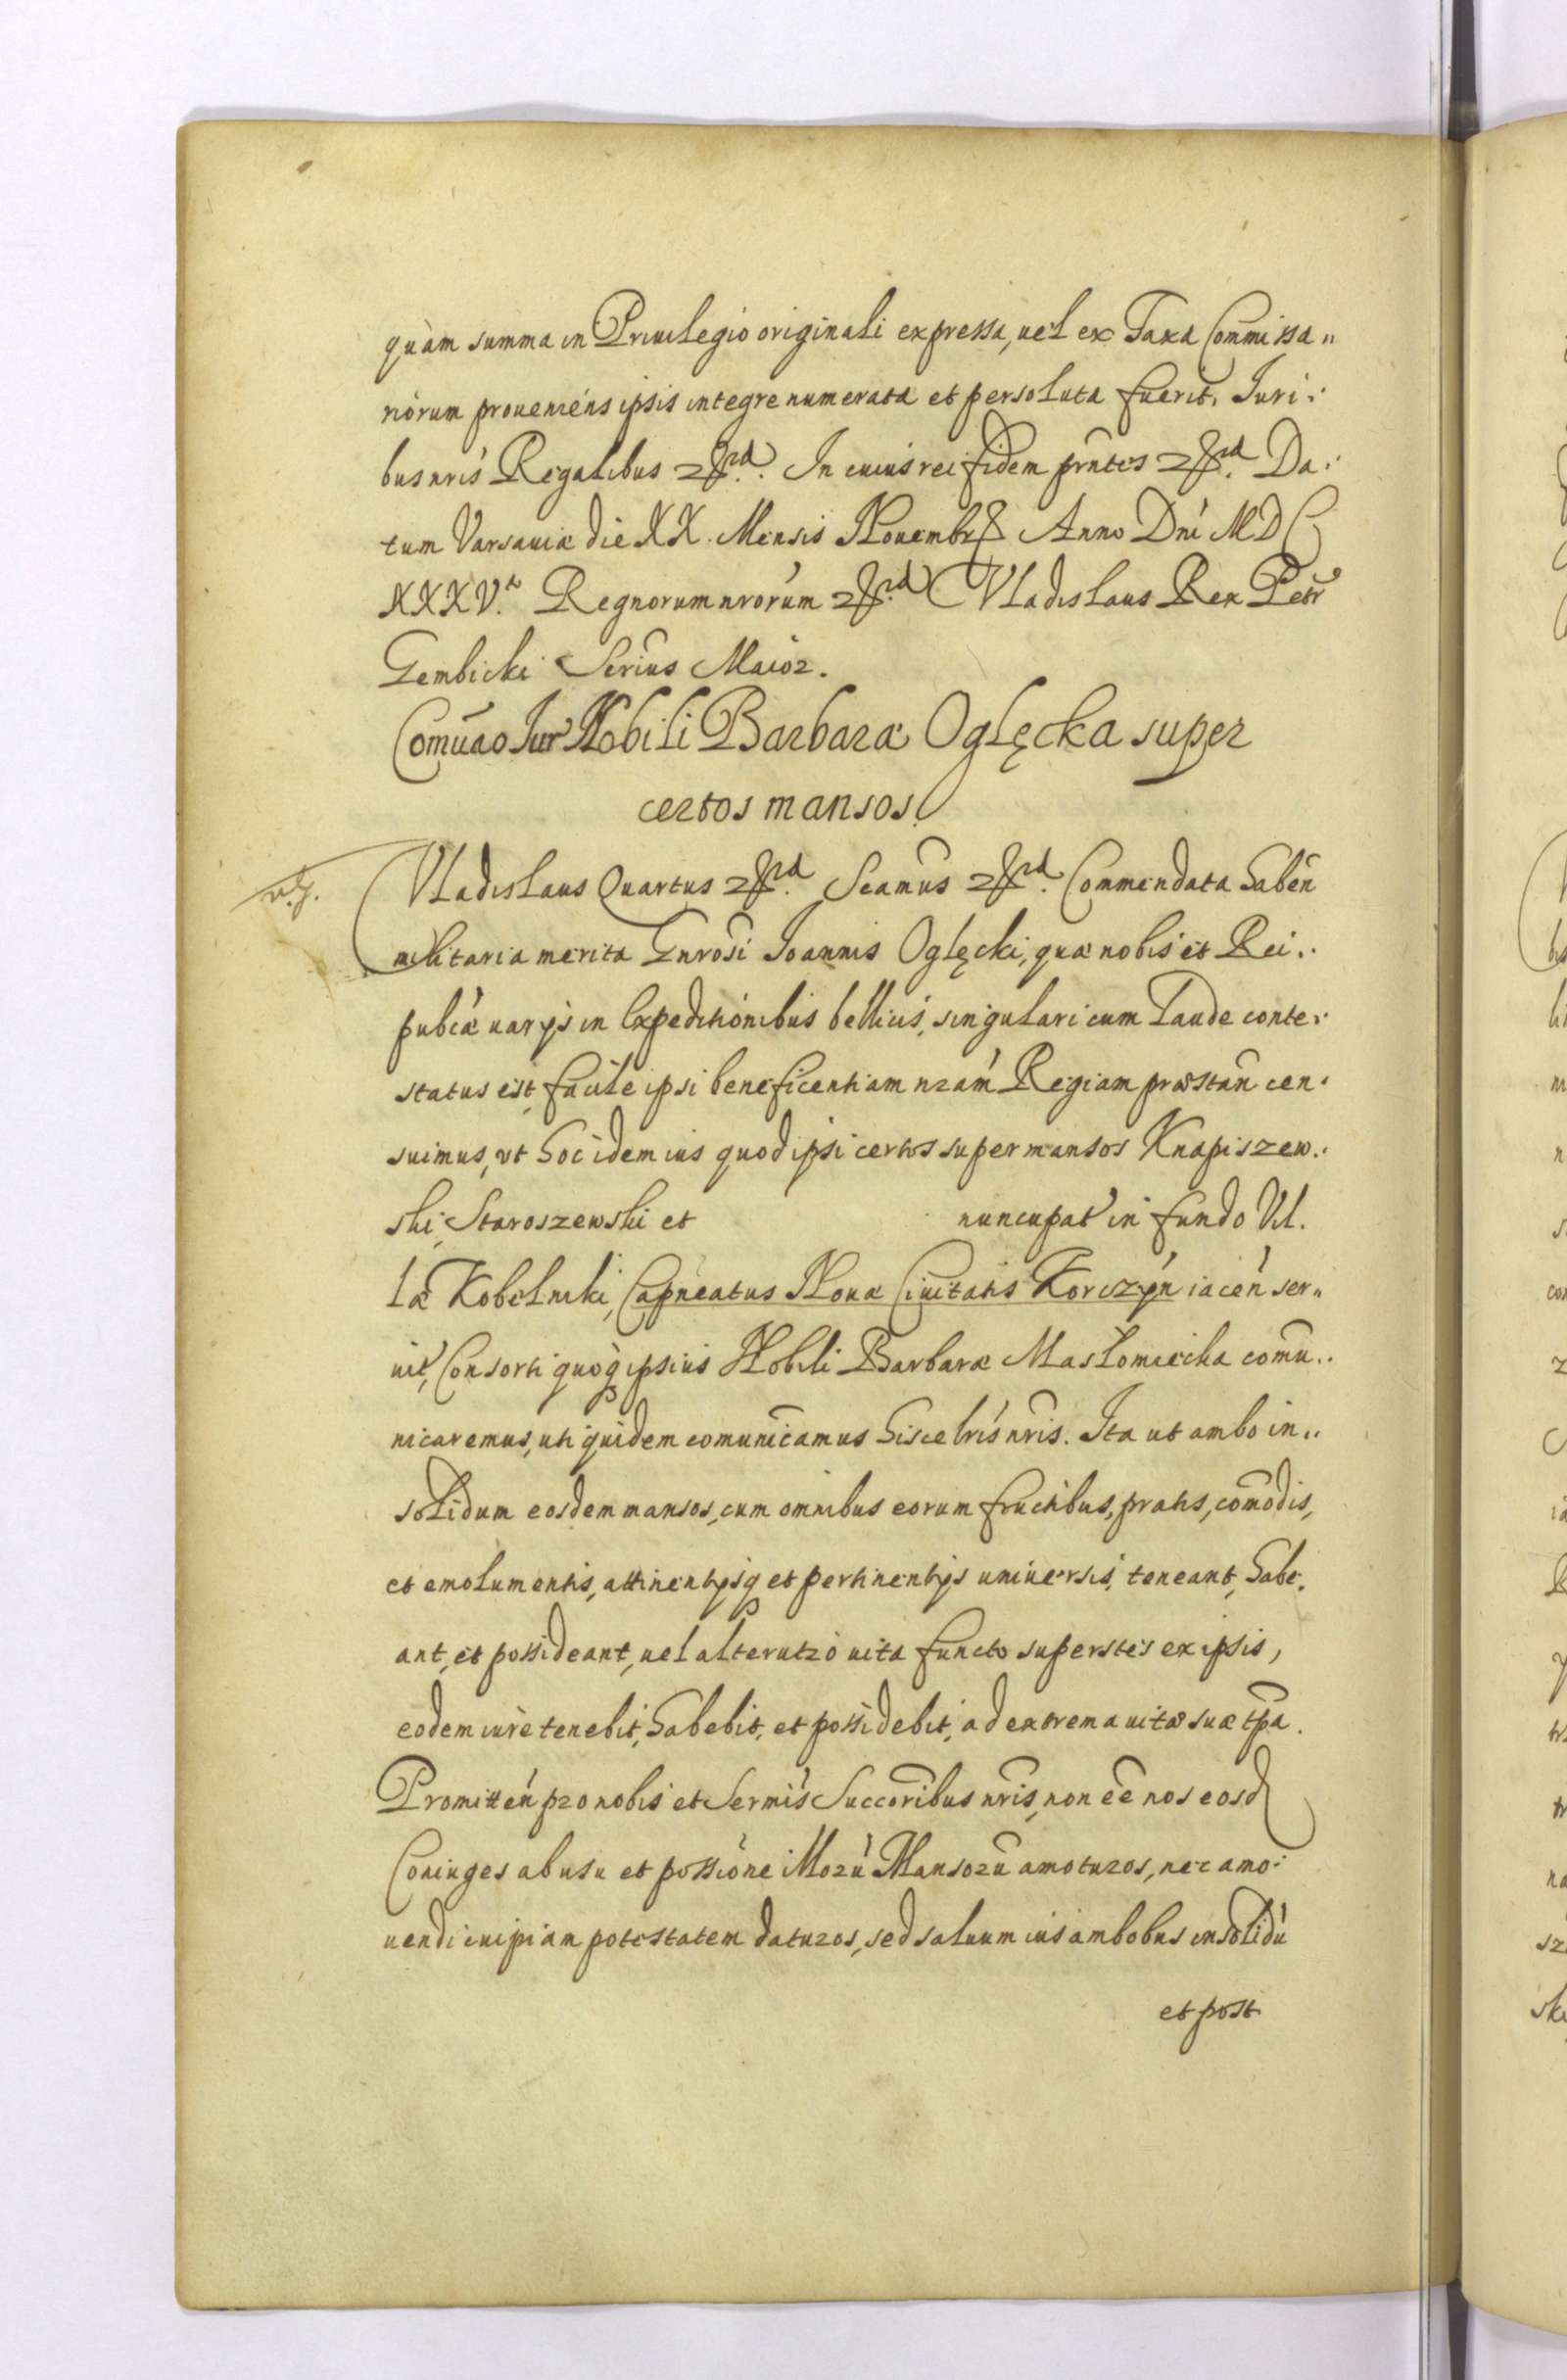 quàm summa in Priuilegio originali expressa, uel ex Taxa Commissa„
riorum proueniens ipsis integre numerata et persoluta fuerit. Juri„
bus nris Regalibus etc. In cuius rei fidem prntes etc. Da„
tum Varsauiæ die XX. Mensis Nouembr Anno Dni MDC
XXXV.to Regnorum nrorum etc. Vladislaus Rex Petr
Gembicki Scrius Maior.
Comūao Jur Nobili Barbaræ Oglęcka super
certos mansos.
Vladislaus Quartus etc. Seamus etc. Commendata haben
militaria merita Gnrosi Joannis Oglęcki, quæ nobis et Rei„
pubcæ uarijs in Expeditionibus bellicis, singulari cum laude conte„
status est, facile ipsi beneficentiam nram Regiam præstan cen„
suimus, ut hoc idem ius quod ipsi certos super mansos Knapiszew„
ski, Staroszewski et nuncupat in fundo Vil.
læ Kobelniki, Capneatus Nouæ Ciuitatis Korczyn iacen ser„
uit, Consorti quoq ipsius Nobili Barbaræ Masłomiecka comu„
nicaremus, uti quidem comunicamus hisce lris nris. Ita ut ambo in„
solidum eosdem mansos, cum omnibus eorum fructibus, pratis, comodis,
et emolumentis, attinentijsq et pertinentijs uniuersis, teneant, habe„
ant, et possideant, uel alterutro uita functo superstes ex ipsis,
eodem iure tenebit, habebit, et possidebit, ad extrema uitæ suæ tpa.
Promitten pro nobis et Sermis Succoribus nris, non ee nos eosd
Coniuges ab usu et possione illorū Mansorū amoturos, nec amo„
uendi cuipiam potestatem daturos, sed saluum ius ambobus insolidū
et post